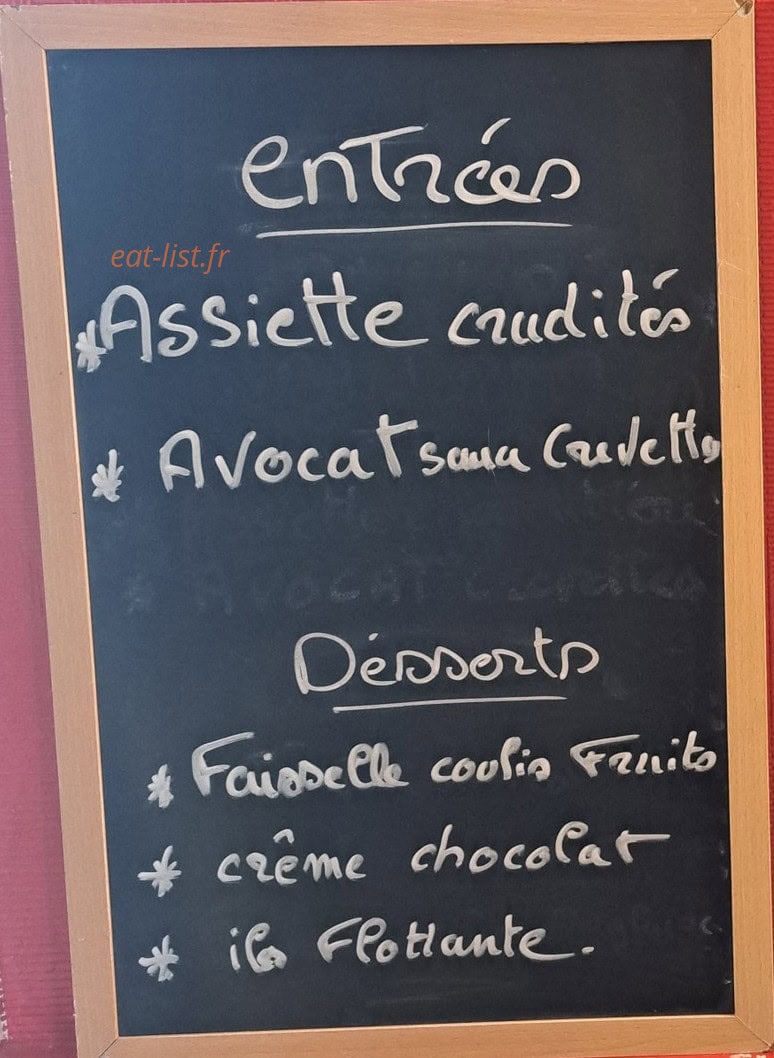 entrées
eat-list.fr
* Assiette crudités
* Avocat sauce Crevettes
Désserts
* Faisselle coulis Fruits
* crême chocolat
* ile Flottante.